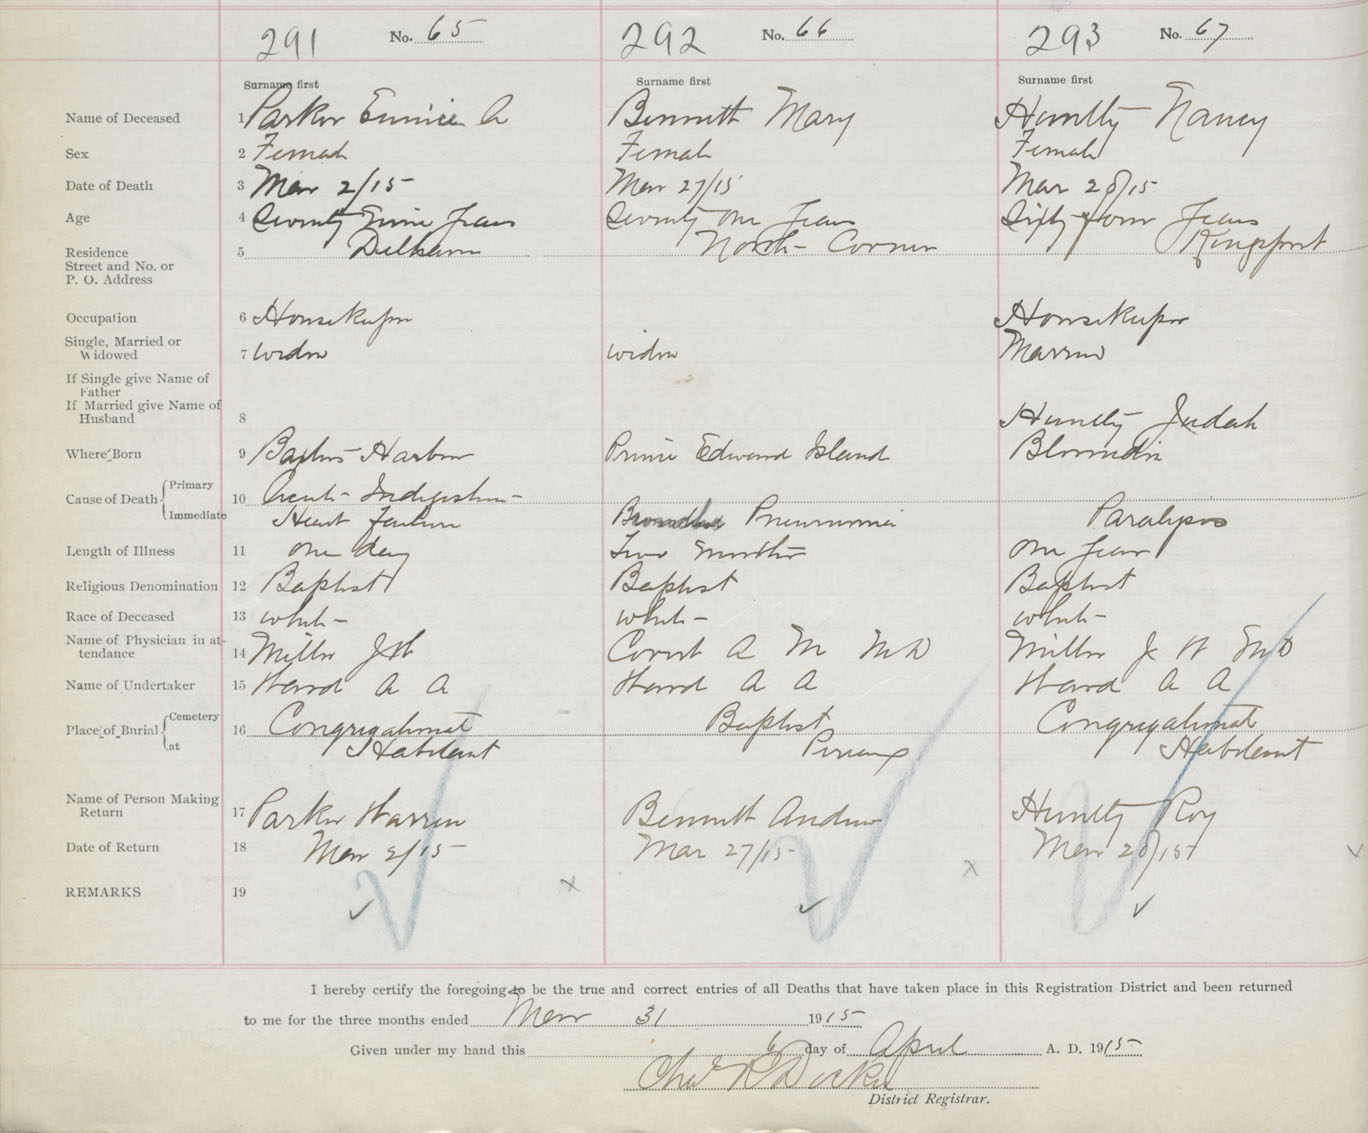 291 No. 65 292 No. 66 293 No. 67
Surname first Surname first Surname first
Name of Deceased 1 Parker Eunice A Bennett Mary Huntly Nancy
Sex 2 Female Female Female
Date of Death 3 Mar 2/15 Mar 27/15 Mar 28/15
Age 4 Seventy Nine Years Seventy one Years Sixty four Years
Residence 5 Delhaven North Corner Kingsport
Street and No. or
P. O. Address
Occupation 6 Housekeeper Housekeeper
Single, Married or
Widowed 7 widow widow Married
If Single give Name of
Father
If Married give Name of
Husband 8 Huntly Judah
Where Born 9 Baxters Harbor Prince Edward Island Blomidon
Cause of Death Primary 10 Acute Indigestion
Immediate Heart Failure Pneumonia Paralysis
Length of Illness 11 one day Two months one year
Religious Denomination 12 Baptist Baptist Baptist
Race of Deceased 13 white white white
Name of Physician in at-
tendance 14 Miller J W Covert A M M D Miller J W M D
Name of Undertaker 15 Ward A A Ward A A Ward A A
Place of Burial Cemetery 16 Congregational Baptist Congregational
at Habitant Pereaux Habitant
Name of Person Making
Return 17 Parker Warren Bennett Andrew Huntly Roy
Date of Return 18 Mar 2/15 Mar 27/15 Mar 28/15
REMARKS 19
I hereby certify the foregoing to be the true and correct entries of all Deaths that have taken place in this Registration District and been returned
to me for the three months ended Mar 31 1915
Given under my hand this 6 day of April A. D. 1915
Chas R
District Registrar.